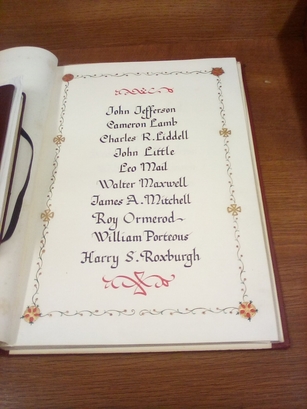 John Jefferson
Cameron Lamb
Charles R. Liddell
John Little
Leo Mail
Walter Maxwell
James A. Mitchell
Roy Ormerod~
William Porteous
Harry S. Roxburgh